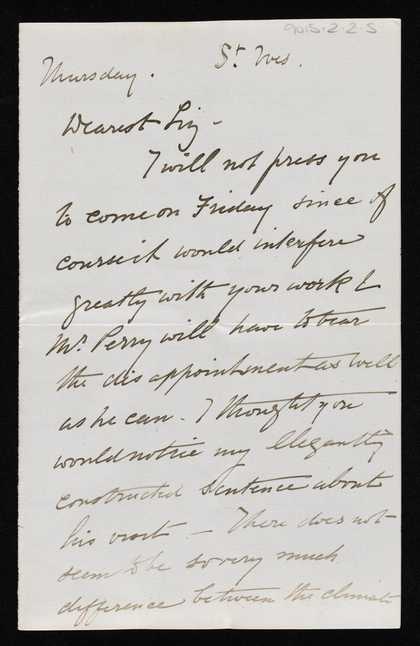 9015-2-2-5
St. Ives.
Thursday.
Dearest Liz -
I will not press you
to come on Friday since of
course it would interfere
greatly with your work &
Mr. Perry will have to bear
the disappointment as well
as he can. I thought you
would notice my elegantly
constructed sentence about
his visit - There does not
seem to be so very much
difference between the climate